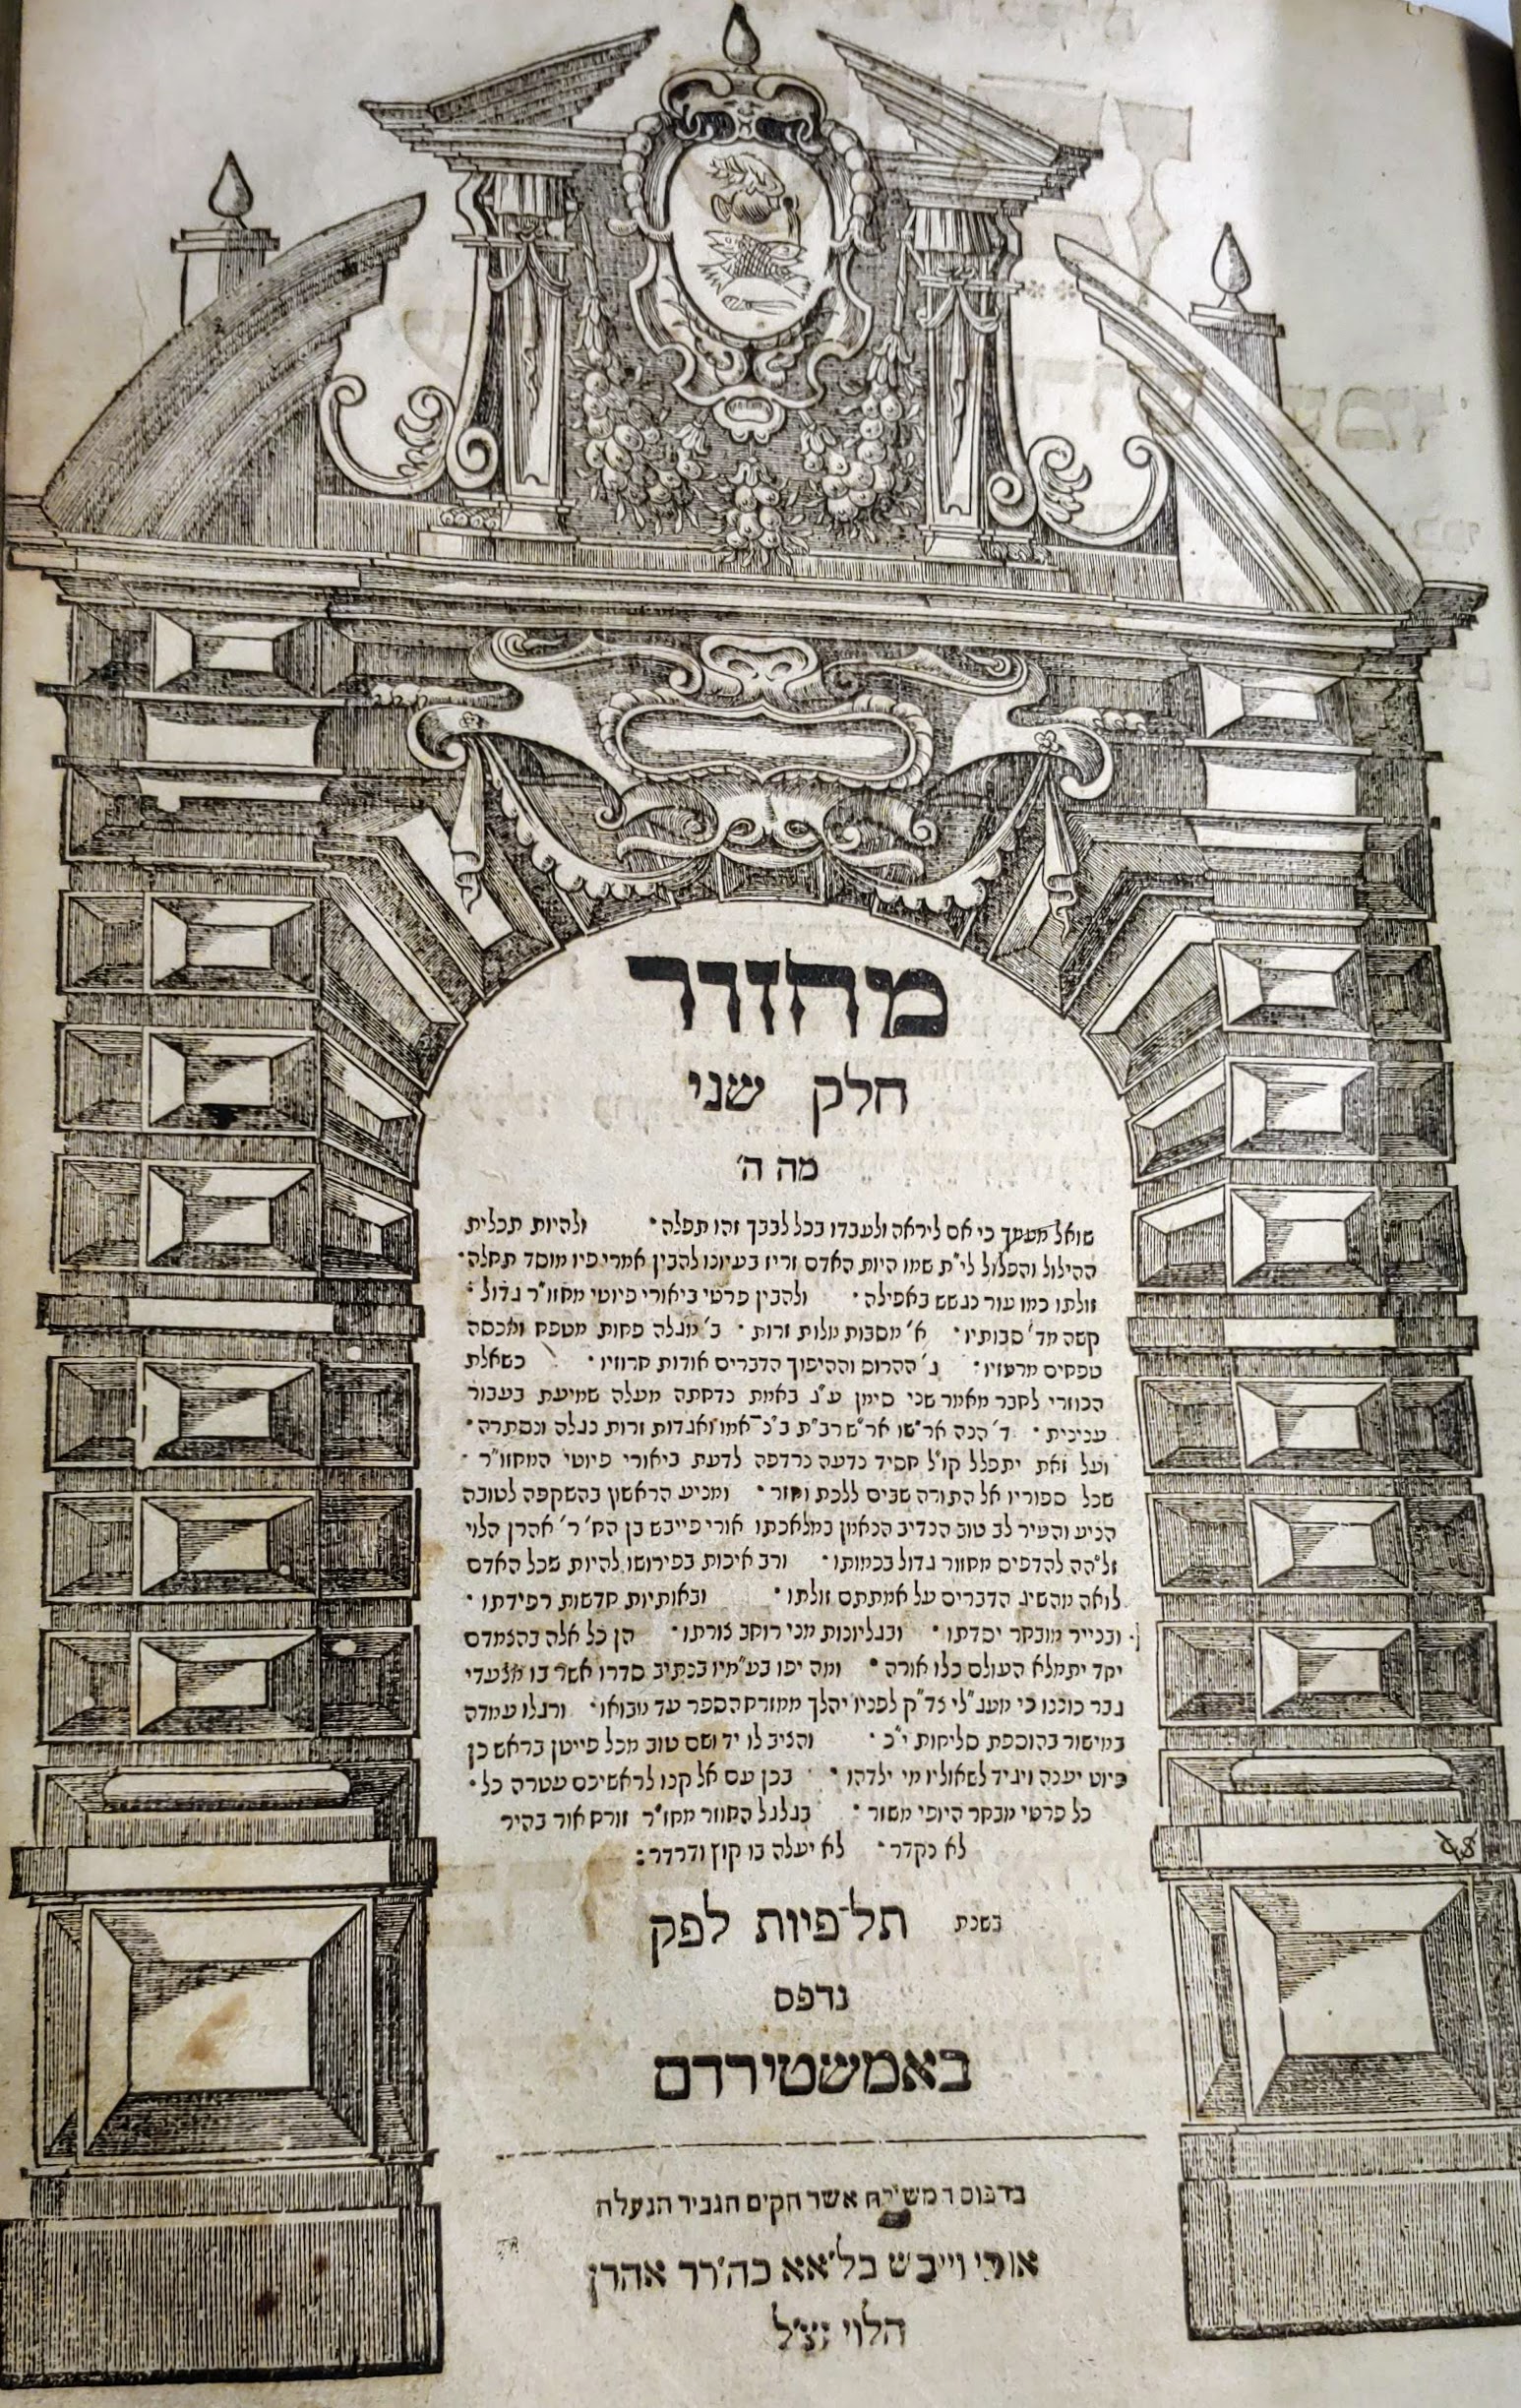 מחזור
חלק שני
מה ה'
שואל מעמך כי אם ליראה ולעבדו בכל לבבך זהו תפלה· ולהיות תכלית
ההילול והפלול לי"ת שמו היות האדם זריז בעיונו להבין אמרי פיו מוסד תחלה·
זולתו כמו עור כגשש באפילה· ולהבין פרטי ביאורי פיוטי מחזו"ר גדול·
קשה מד' סבותיו· א' מסבות מלות זרות· ב' מגלה פחות מטפח ומכסה
טפחים מרמזיו· ג' ההרוס וההיפוך הדברים אודות חרוזיו· כשאלת
הכוזרי לחבר מאמר שני סימן ע"ג באמת נדחתה מעלה שמיעת בעבור
עניינית· ד' הנה ואגדות זרות נגלה ונסתרה·
ועל זאת יתפלל קו"ל חסיד נדעה נרדפה לדעת ביאורי פיוטי המחזו"ר·
שכל ספוריו אל התורה שבים ללכת וחזר· ומניע הראשון בהשקפה לטובה
הניע והעיר לב טוב הנדיב הנאמן במלאכתו אורי פייבש בן הח' ר' אהרן הלוי
זל"הה להדפיס מחזור גדול בכמותו· ורב איכות בפירושו להיות שכל האדם
לואה מהשיג הדברים על אמתתם זולתו· ובאותיות חדשות רפידתו·
ובנייר מובחר יסדתו· ובגליונות מני רוחב צורתו· הן כל אלה בהצמדם
יחד יתמלא העולם כלו אורה· ומה יפו בע"מיו בנתיב סדרו אשר בו מצעדי
גבר כוננו כי מעג"לי צד"ק לפניו יהלך ממזרח הספר עד מבואו· ורגלו עמדה
במישור בהוספת סליחות י"כ· והציב לו יד ושם טוב מכל פייטן בראש כן
פיוט יענה ויגיד לשאוליו מי ילדהו· בכן עם אל קנו לראשיכם עטרה כל·
כל פרטי מבחר היופי משזר· בגלגל החוזר מחז"ר זורח אור בהיר
לא נקדר· לא יעלה בו קוץ ודרדר:
בשנת תל־פיות לפק
נדפס
באמשטירדם
בדפוס אשר הקים הגביר הנעלה
אורי ווייבש בל"אא כה"רר אהרן
הלוי זצ"ל